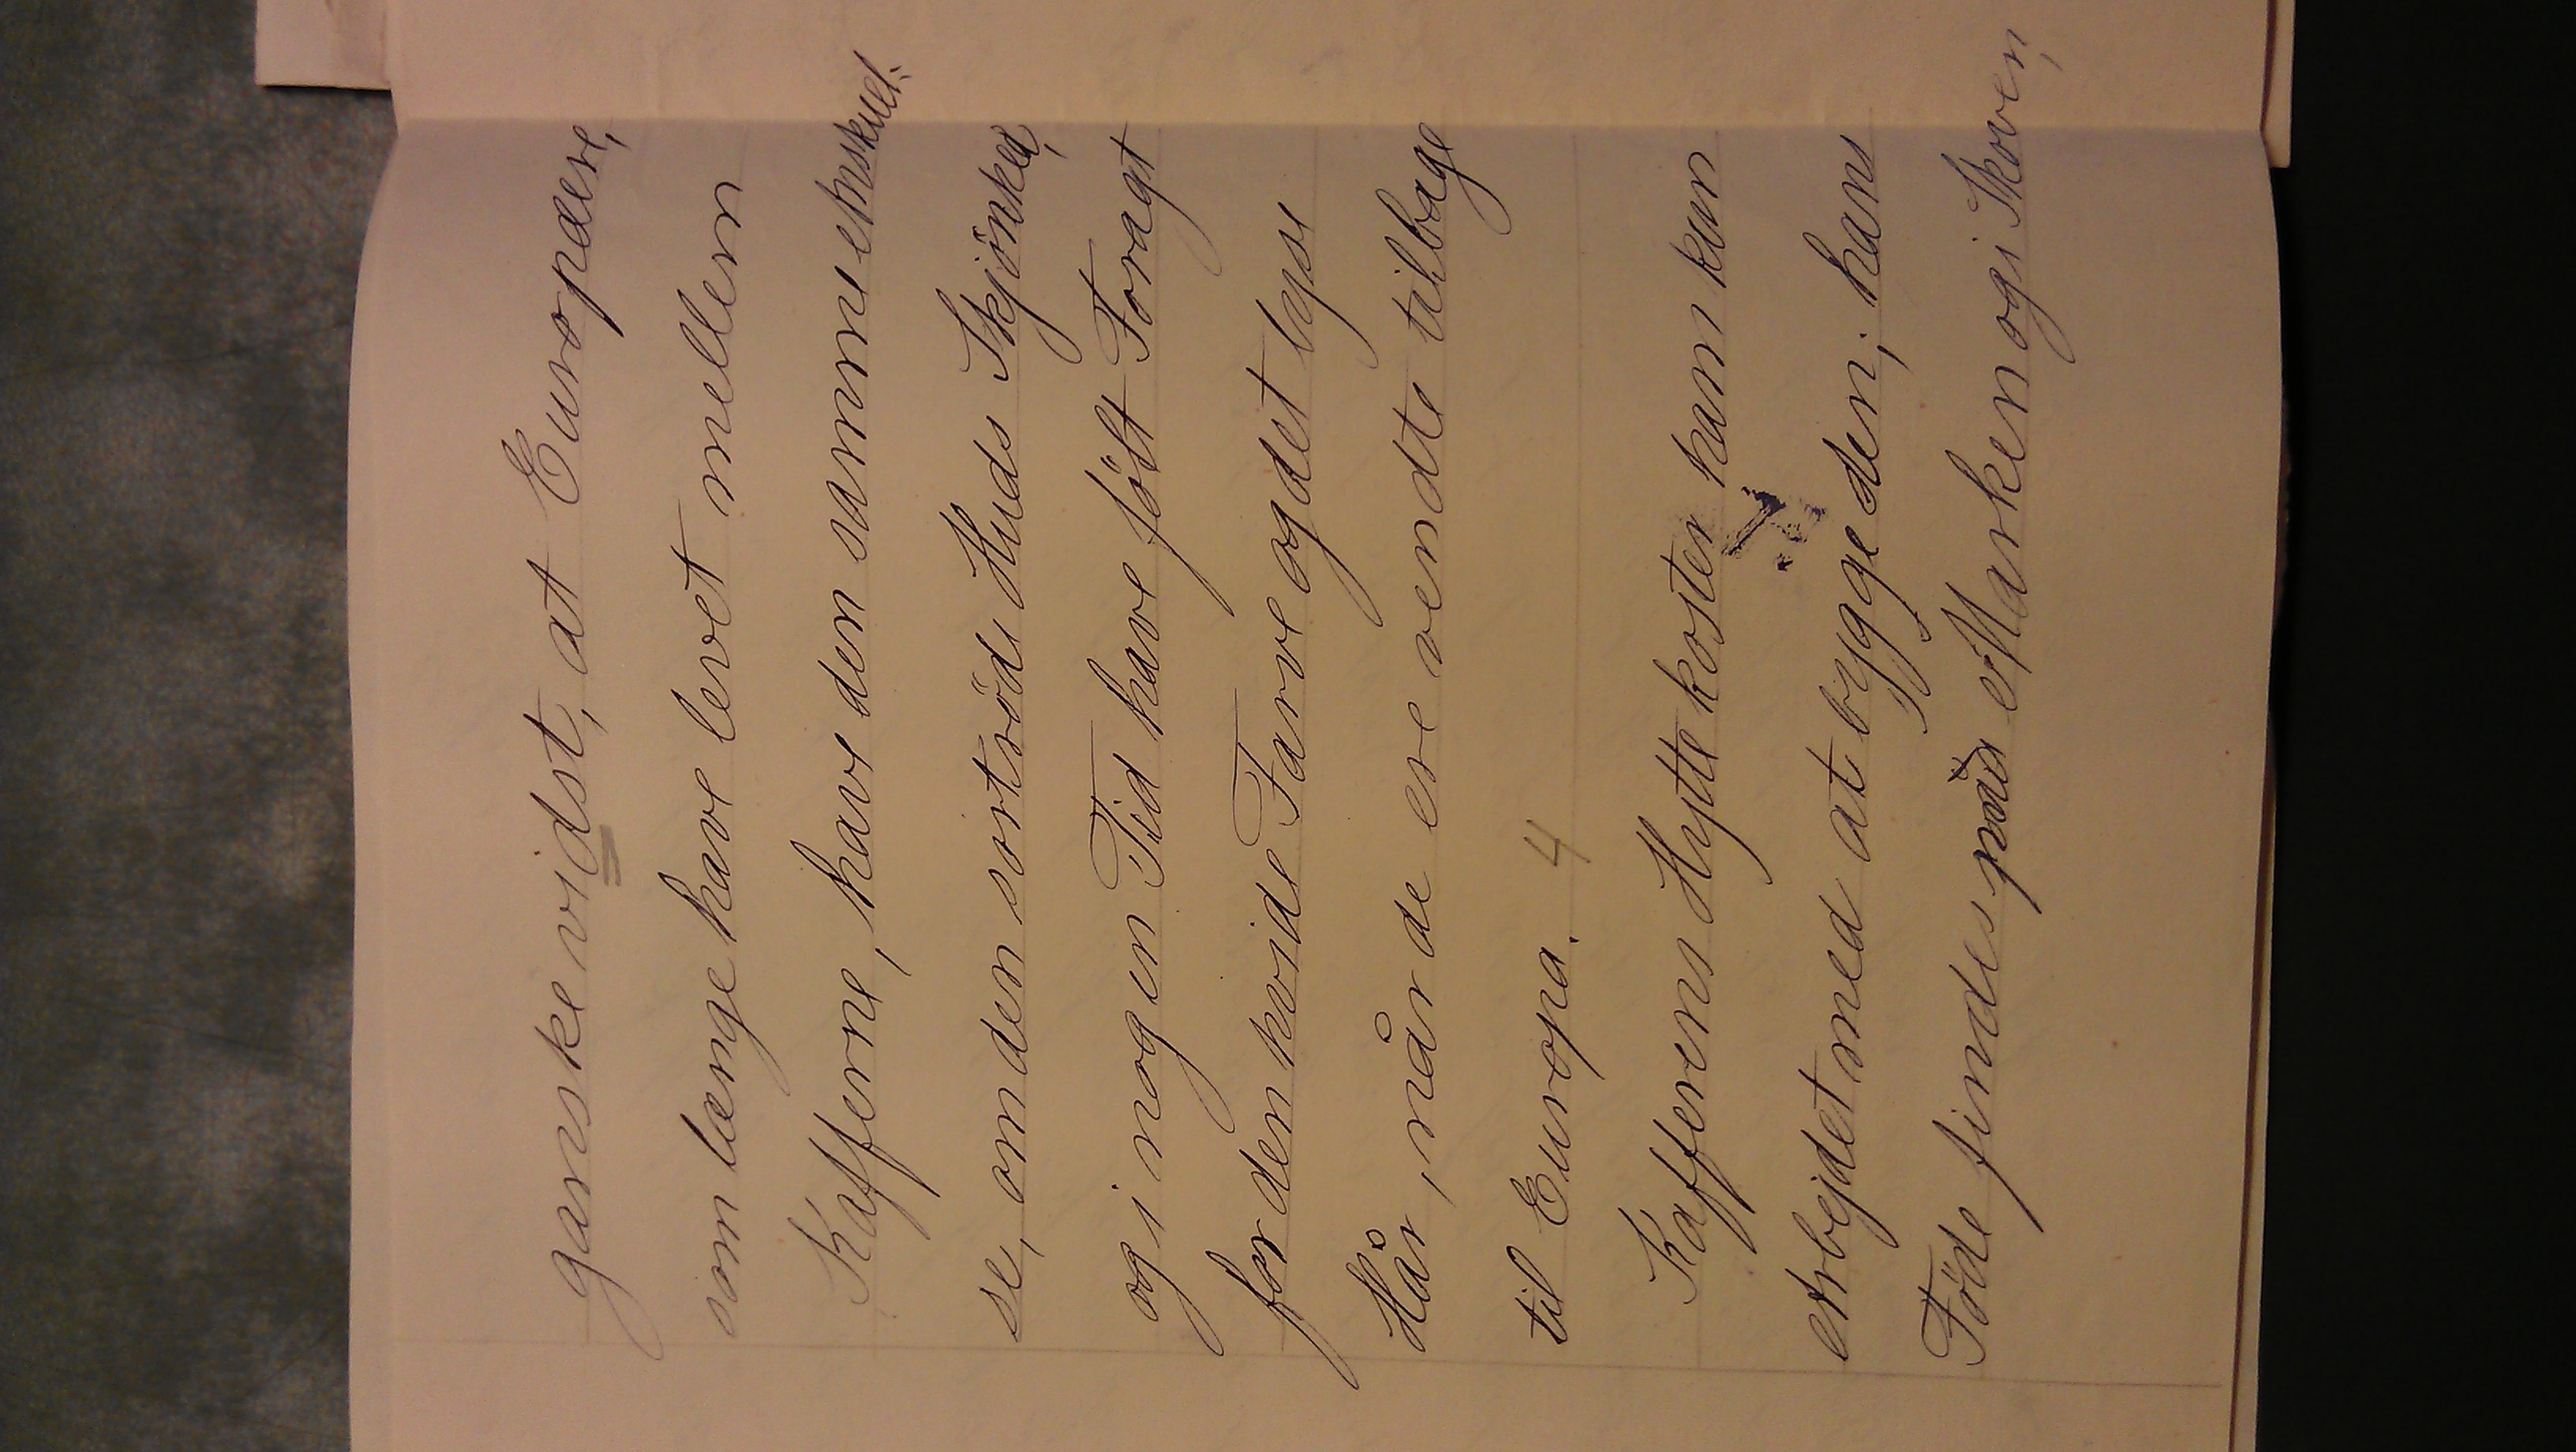 ganske vidst, at Europæere,
som længe have levet mellem
Kafferne, have den samme Anskuel:
se, om den sortröde Huds Skjönhed,
og i nogen Tid have fölt Foragt
for den hvide Farve og det lyse
Hår, når de ere vendte tilbage
til Europa. 4
Kafferens Hytte koster ham kun
Arbejdet med at bygge den; hans
Föde findes på Marken og i Skoven,